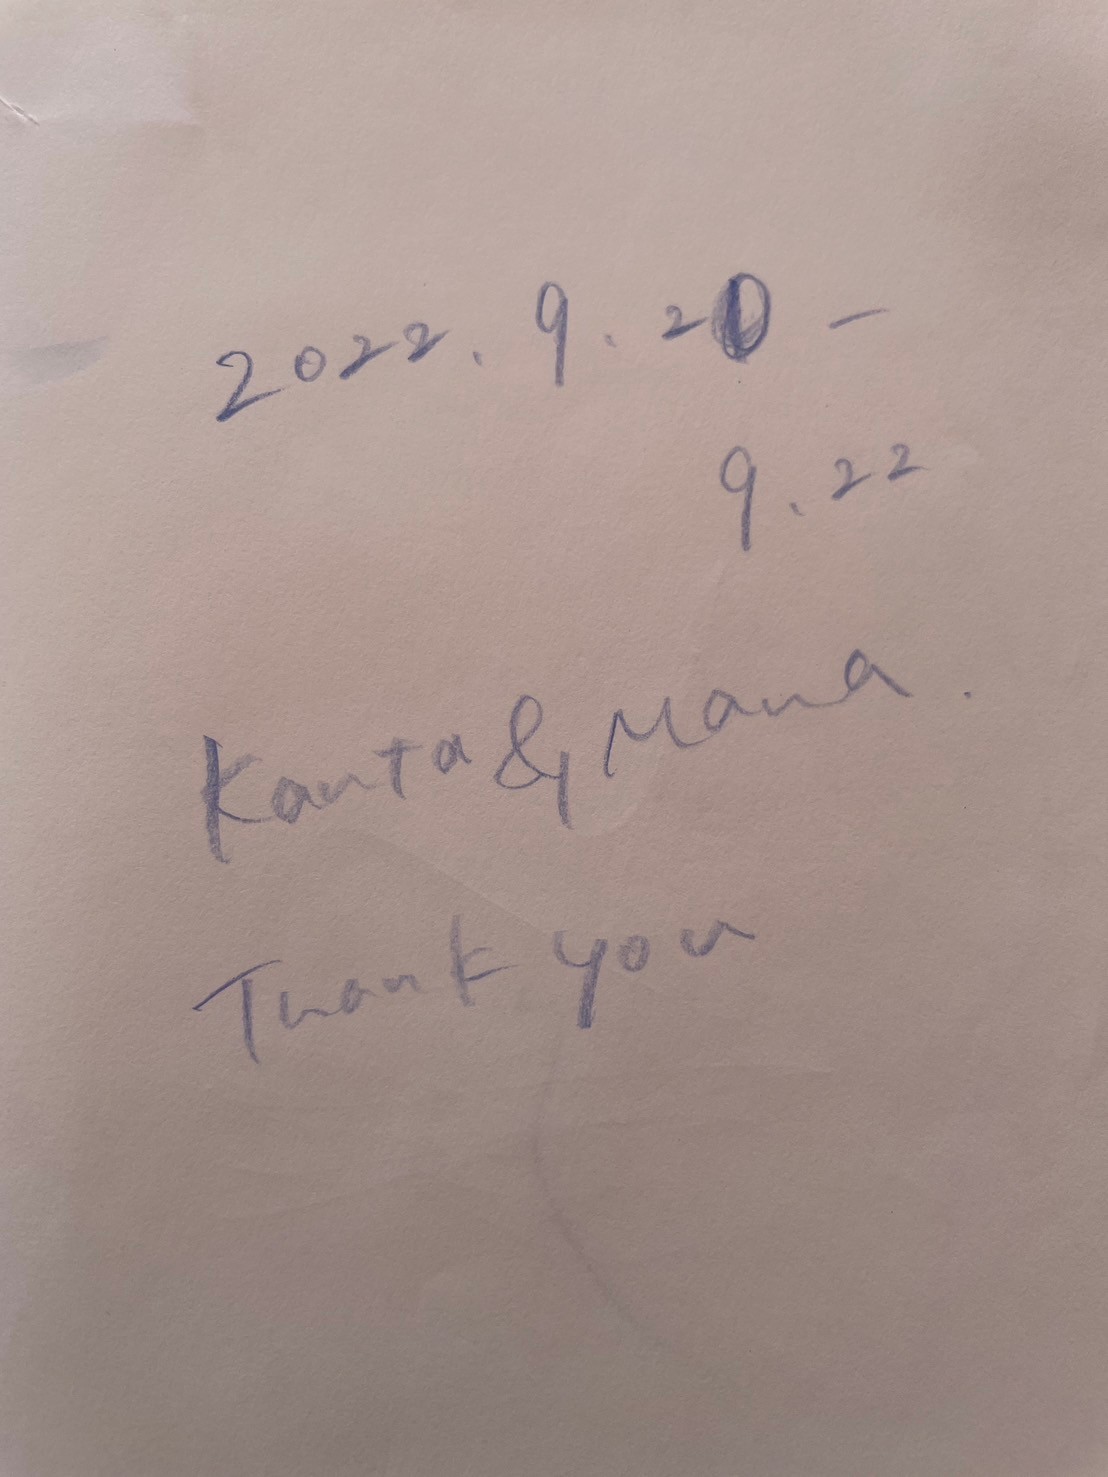 2022.9.20-
9.22
Kanta & Mana.
Thank you